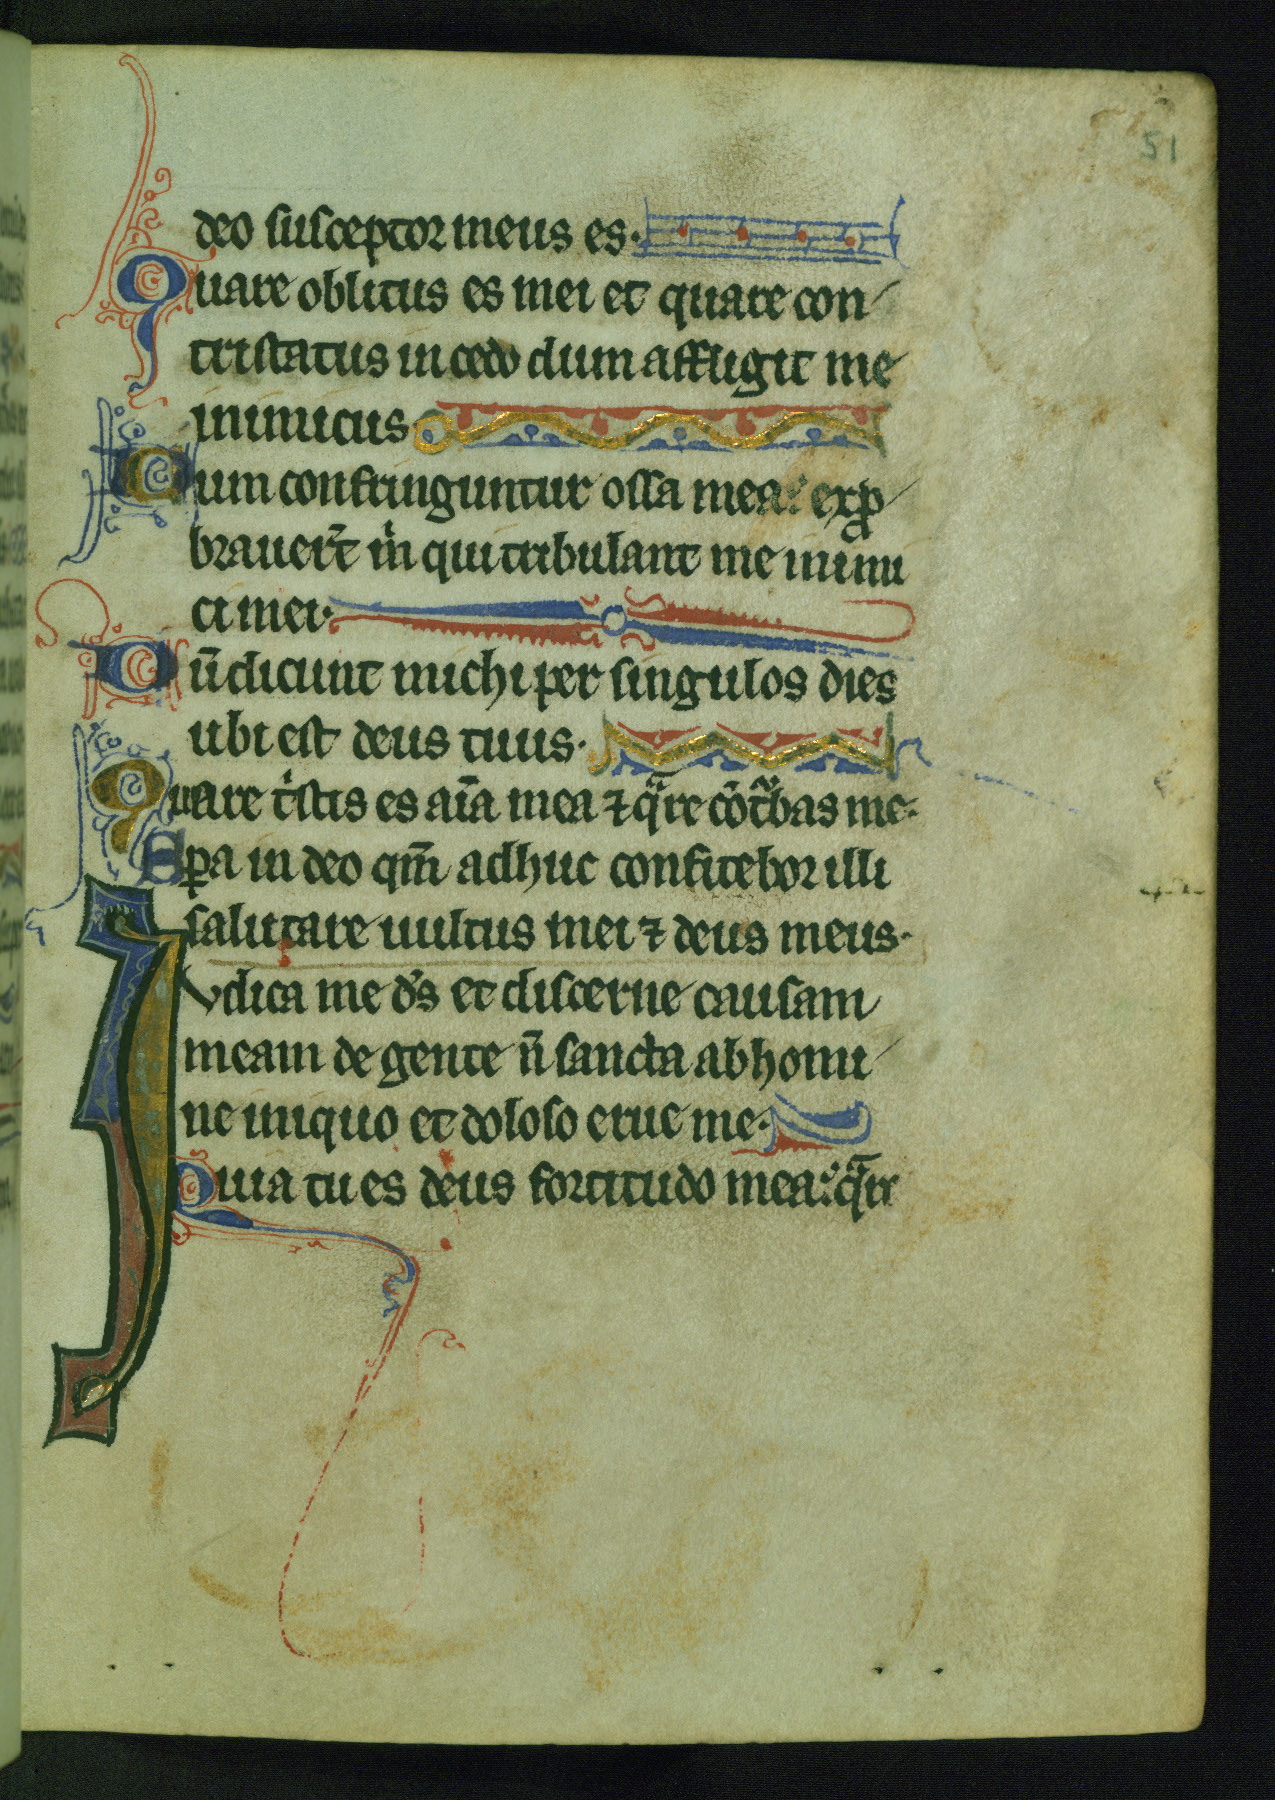 51
deo susceptor meus es.
Quare oblitus es mei et quare con
tristatus incedo dum affligit me
inimicus
Dum confringuntur ossa mea: exꝓ
brauerūt m̍ qui tribulant me inimi
ci mei.
Dū dicunt michi per singulos dies
ubi est deus tuus.
Quare t̍stis es aīa mea ⁊ qᷓre cōt᷑bas me.
Spera in deo qm̄ adhuc confitebor illi
salutare uultus mei ⁊ deus meus.
Iudica me ds̄ et discerne causam
meam de gente n̄ sancta ab homi
ne iniquo et doloso erue me.
Quia tu es deus fortitudo mea: qᷓre